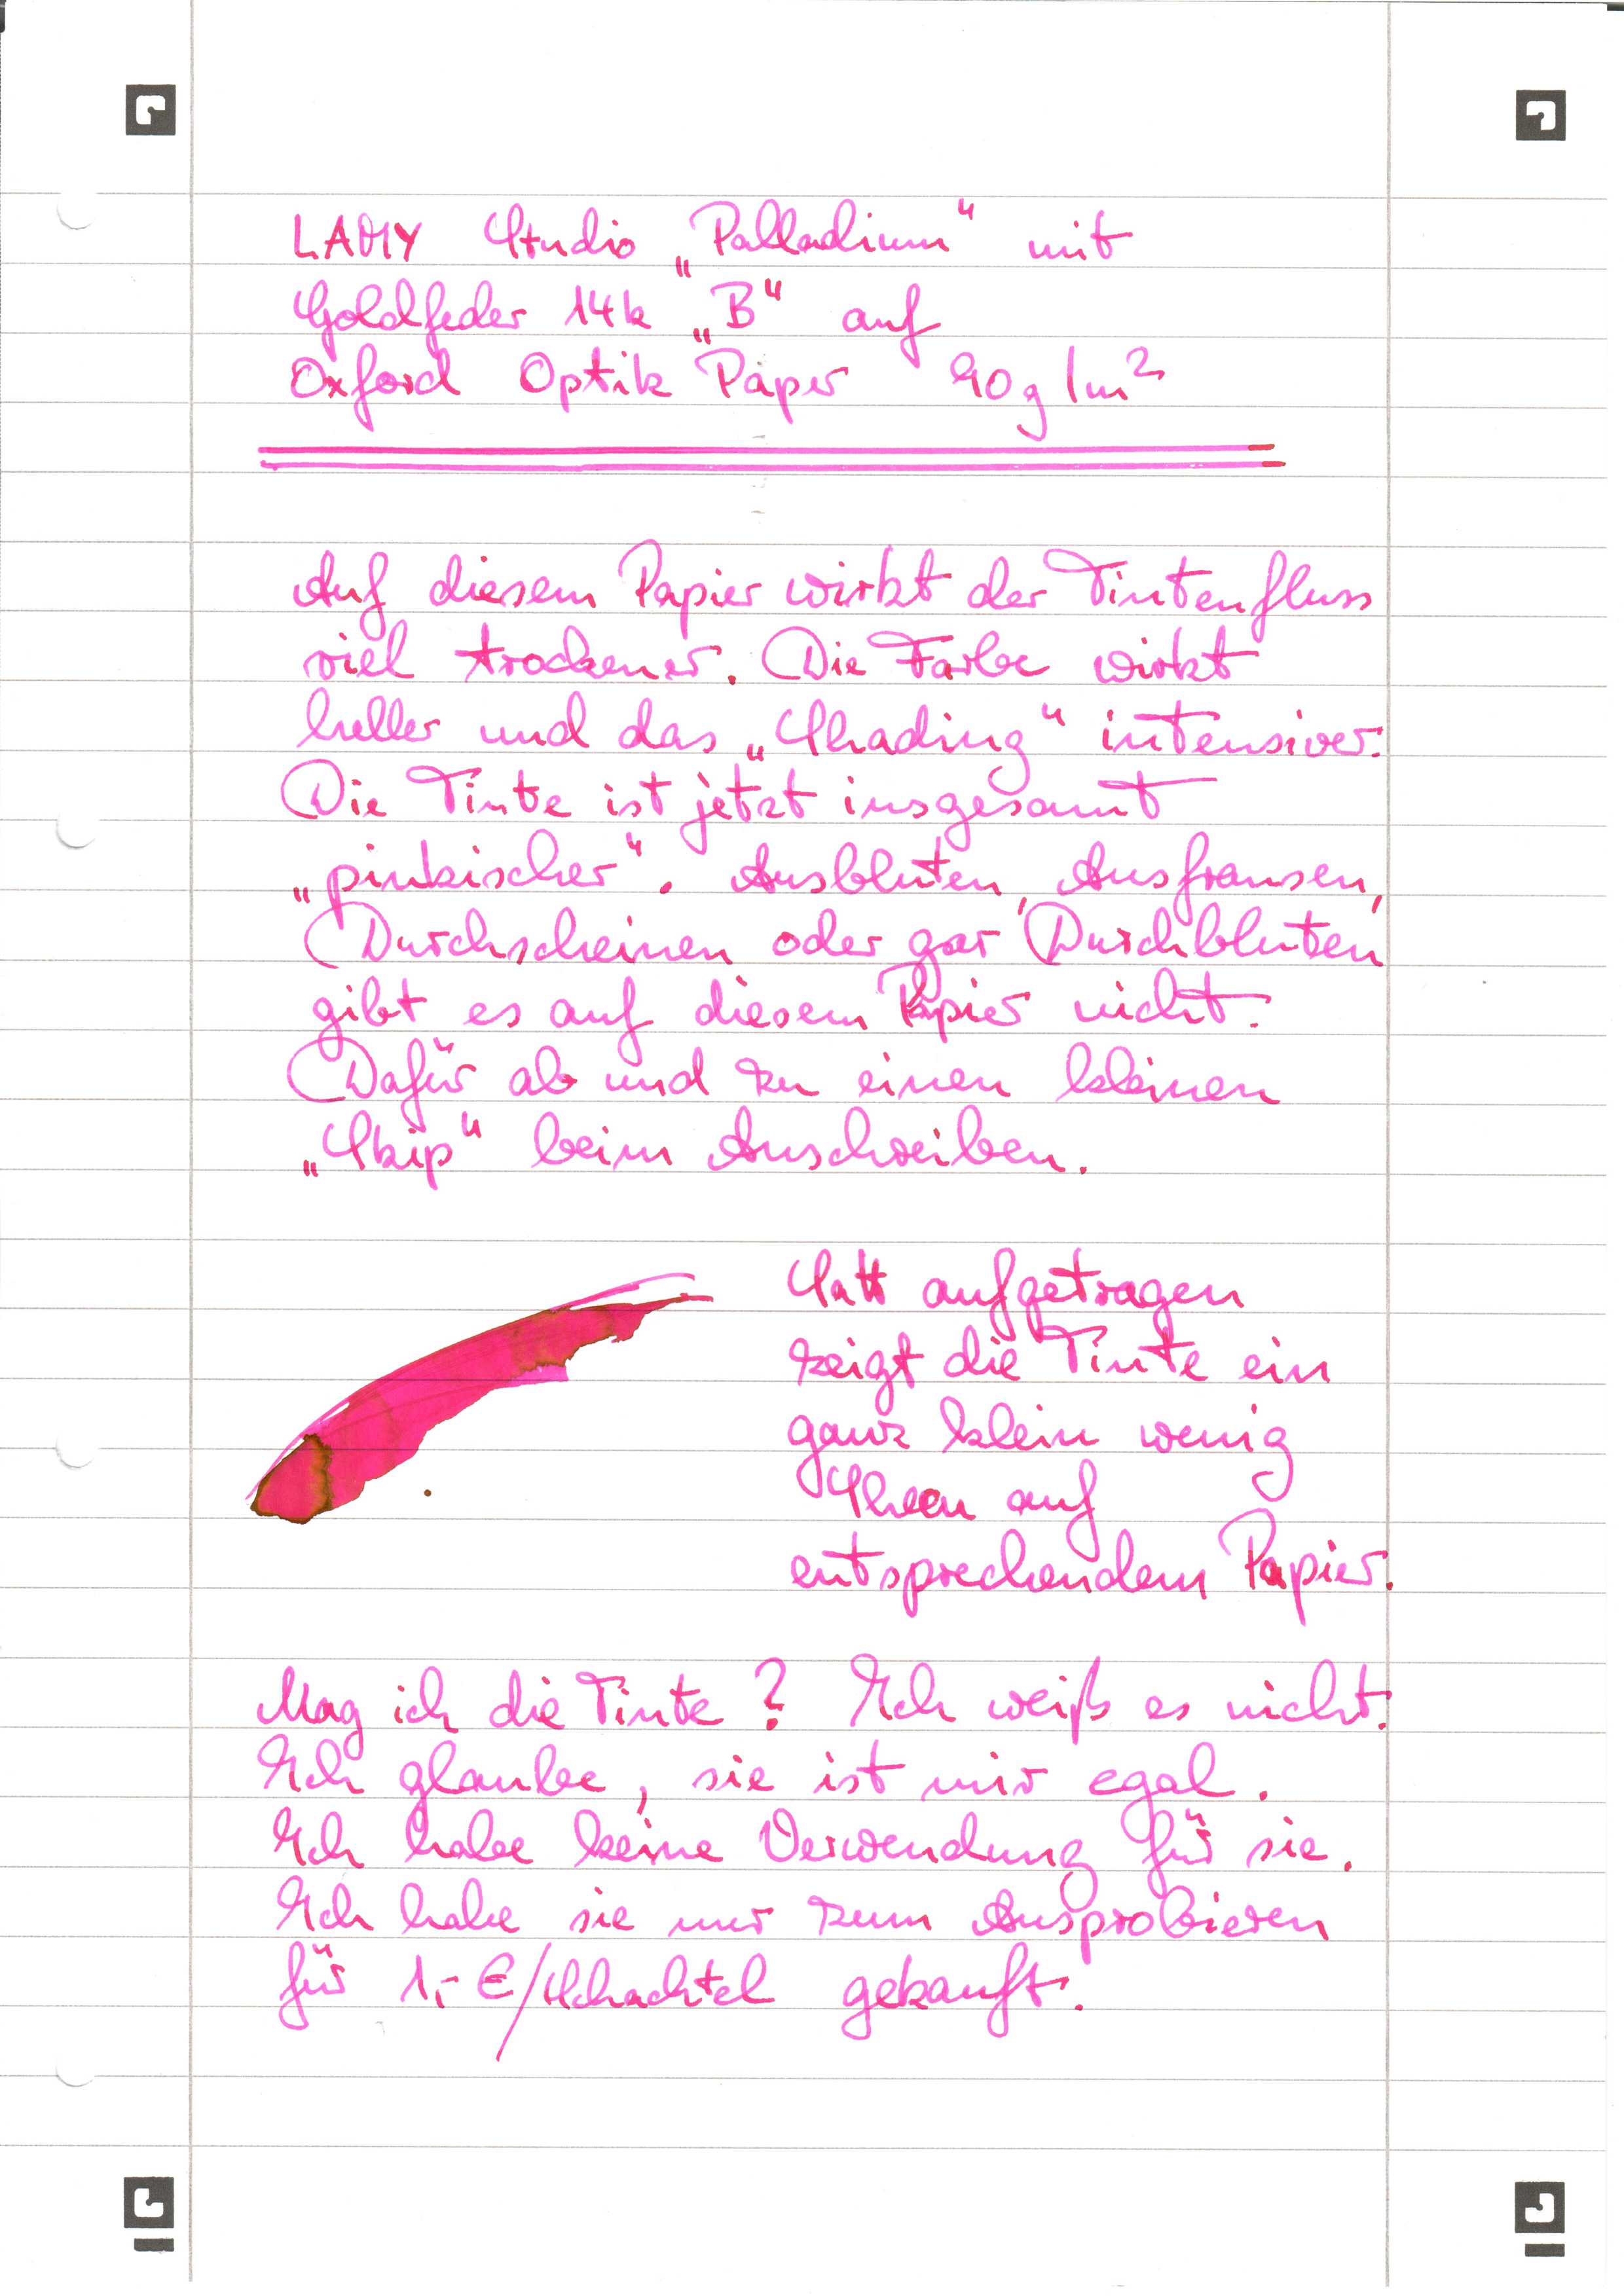 LAMY Studio „Palladium“ mit
Goldfeder 14k „B“ auf
Oxford Optik Paper 90g/m²
Auf diesem Papier wirkt der Tintenfluss
viel trockener. Die Farbe wirkt
heller und das „Shading“ intensiver.
Die Tinte ist jetzt insgesamt
„pinkischer“. Ausbluten, Ausfransen,
Durchscheinen oder gar Durchbluten
gibt es auf diesem Papier nicht.
Dafür ab und zu einen kleinen
„Skip“ beim Anschreiben.
Satt aufgetragen
zeigt die Tinte ein
ganz klein wenig
Sheen auf
entsprechendem Papier.
Mag ich die Tinte? Ich weiß es nicht.
Ich glaube, sie ist mir egal.
Ich habe keine Verwendung für sie.
Ich habe sie nur zum Ausprobieren
für 1,- €/Schachtel gekauft.